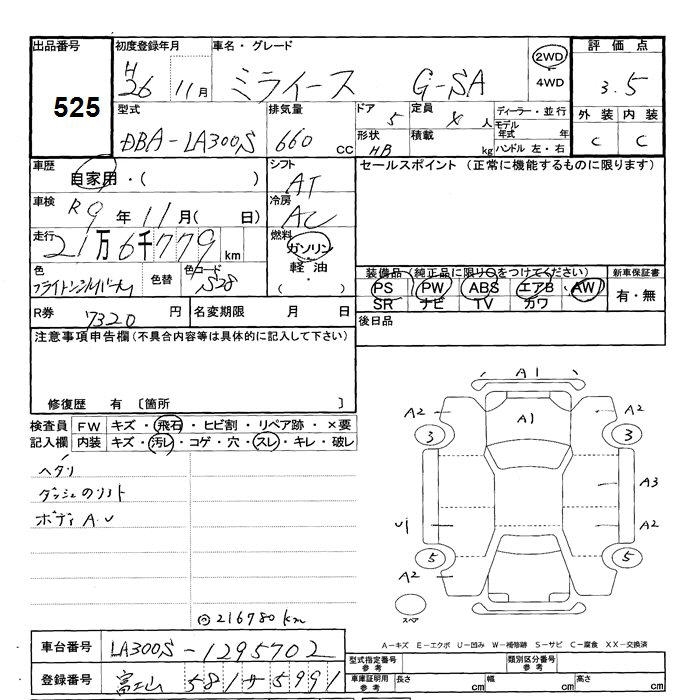 出品番号 初度登録年月 車名・グレード 評価点
525
H26 11月 ミライース G-SA 2WD 4WD 3.5
型式 排気量 ドア 5 定員 4 人 ディーラー・並行 外装 内装
DBA-LA300S 660 cc 形状 HB 積載 kg モデル年式 年 ハンドル 左・右 C C
車歴 自家用・( ) シフト AT セールスポイント (正常に機能するものに限ります)
車検 R9年11月( 日) 冷房 AC
走行 21万6千779km 燃料 ガソリン・軽油・( )
色 ブライトシルバーM 色替 色コード S28
装備品(純正品に限り○をつけてください) 新車保証書
PS PW ABS エアB AW 有・無
SR ナビ TV カワ
R券 7320 円 名変期限 月 日 後日品
注意事項申告欄(不具合内容等は具体的に記入して下さい)
修復歴 有 〔箇所 〕
検査員 FW キズ・飛石・ヒビ割・リペア跡・×要
記入欄 内装 キズ・汚レ・コゲ・穴・スレ・キレ・破レ
ヘタリ
ダッシュのソリト
ボディ A.U
216780km
A1
A2 A1 A2
3 3
A3
U1 A2
5 5
A2
スペア
A-キズ E-エクボ U-凹み W-補修跡 S-サビ C-腐食 XX-交換済
車台番号 LA300S-1295702
型式指定番号 参考 類別区分番号 参考
登録番号 富山 581 サ 5991
車庫証明用 参考 長さ cm 幅 cm 高さ cm